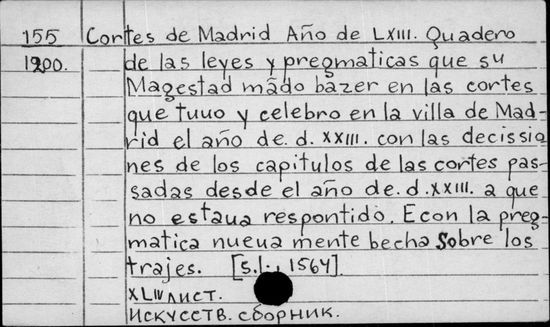 155 Cortes de Madrid Año de LXIII. Quadero
1200. de las leyes y pregmaticas que su
Magestad mãdo bazer en las cortes
que tuuo y celebro en la villa de Mad-
rid el año de. d. XXIII. con las decissio-
nes de los capitulos de las cortes pas-
sadas desde el año de. d. XXIII. a que
no estaua respontido. Econ la preg-
matica nueua mente becha sobre los
trajes. [s.l., 1564].
XLIV лист.
Искусств. сборник.